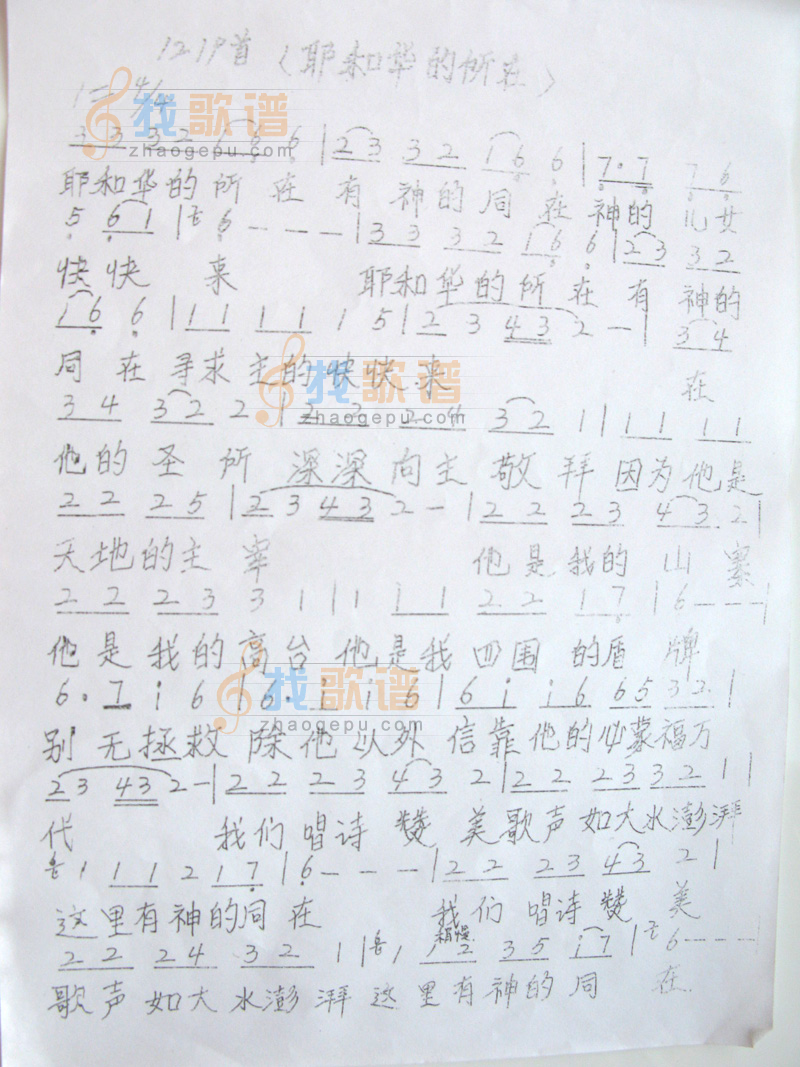 1219首（耶和华的所在）
1= 4/4
3 3 3 2 1 6 6 | 2 3 3 2 1 6 6 | 7· 7 7 6
耶和华的所在有神的同在神的儿女
5 6 1 | 6 - - - | 3 3 3 2 1 6 6 | 2 3 3 2
快快来 耶和华的所在有神的
1 6 6 | 1 1 1 1 1 5 | 2 3 4 3 2 - | 3 4
同在寻求主的快快来 在
3 4 3 2 2 | 2 2 2 4 3 2 1 | 1 1 1 1
他的圣所深深向主敬拜因为他是
2 2 2 5 | 2 3 4 3 2 - | 2 2 2 3 4 3 2 |
天地的主宰 他是我的山寨
2 2 2 3 3 1 | 1 1 1 2 2 1 7 | 6 - - - |
他是我的高台他是我四围的盾牌
6· 7 i 6 | 6· i i 6 | 6 i i 6 6 5 3 2 |
别无拯救除他以外信靠他的必蒙福万
2 3 4 3 2 - | 2 2 2 3 4 3 2 | 2 2 2 3 3 2 1 |
代 我们唱诗赞美歌声如大水澎湃
1 1 1 2 1 7 | 6 - - - | 2 2 2 3 4 3 2 |
这里有神的同在 我们唱诗赞美
稍慢
2 2 2 4 3 2 1 | 1 1 2 3 5 1 7 | 6 - - - |
歌声如大水澎湃这里有神的同在
找歌谱
zhaogepu.com
找歌谱
zhaogepu.com
找歌谱
zhaogepu.com